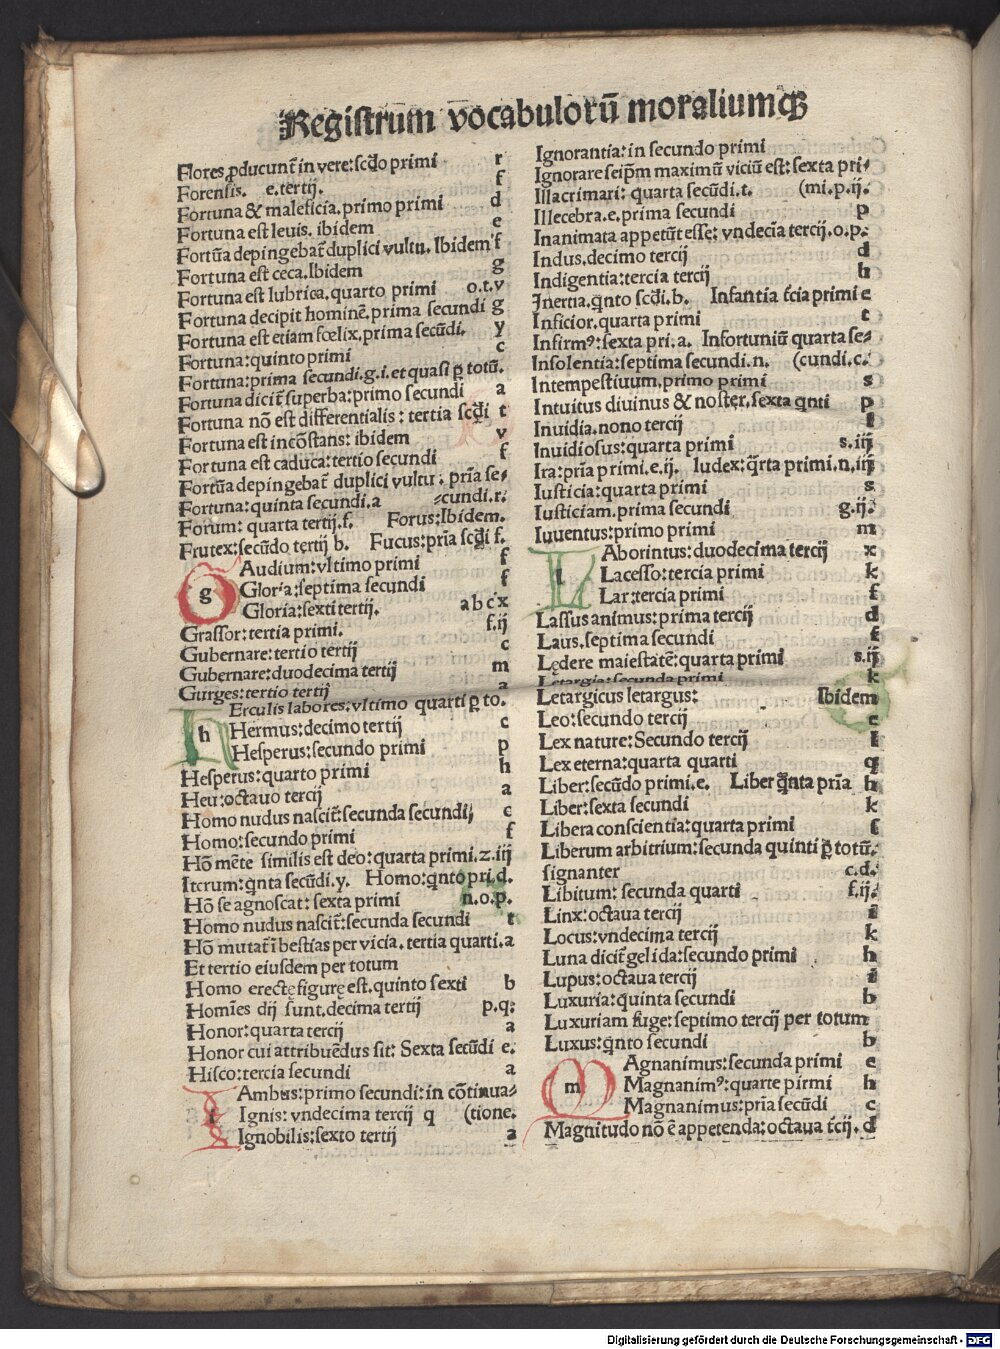 Regiſtrum vocabuloru᷑ moraliumqꝫ
Flores ꝓducunt̄ in vere: ſcd̄o primi r
Forenſis. e.tertij. f
Fortuna & maleficia.primo primi d
Fortuna eſt leuis. ibidem e
Fortūa depingebat̄ duplici vultu. Ibidem f
Fortuna eſt ceca.Ibidem g
Fortuna eſt lubrica.quarto primi o.t.v
Fortuna decipit hominē.prima secundi g
Fortuna eſt etiam fœlix.prima secūdi. y
Fortuna:quinto primi c
Fortuna:prima secundi.g.i.et quaſi p̄ totū.
Fortuna dicit̄ ſuperba:primo secundi a
Fortuna nō eſt differentialis: tertia ſcd̄i t
Fortuna eſt incōſtans: ibidem v
Fortuna eſt caduca:tertio secundi f
Fortūa depingebat̄ duplici vultu: pria se⸗
Fortuna:quinta secundi.a ⸗cundi.r.
Forum: quarta tertij.f. Forus:Ibidem.
Frutex:ſecūdo tertij b. Fucus:pria ſcd̄i f.
g
Audium:vltimo primi f
Gloria:ſeptima secundi f
Gloria:ſexti tertij. a b c x
Graſſor:tertia primi. f.ij
Gubernare:tertio tertij c
Gubernare:duodecima tertij m
Gurges:tertio tertij a
h
Erculis labores:vltimo quarti p̄ to.
Hermus:decimo tertij c
Heſperus:ſecundo primi p
Heſperus:quarto primi h
Heu:octauo tercij a
Homo nudus naſcit̄:ſecunda secundi, c
Homo:ſecundo primi f
Hō mēte ſimilis eſt deo:quarta primi.z.iij
Iterum:q̄nta ſecūdi.y. Homo:q̄nto pri.d.
Hō ſe agnoſcat: ſexta primi n.o.p.
Homo nudus naſcit̄:ſecunda secundi t
Hō mutat̄ ī beſtias per vicia.tertia quarti.a
Et tertio eiuſdem per totum
Homo erectę figurę eſt.quinto ſexti b
Homīes dij ſunt.decima tertij p.q:
Honor:quarta tercij a
Honor cui attribuēdus ſit: Sexta ſecūdi e.
Hiſco:tercia secundi a
i
Ambus:primo secundi:in cōtinua⸗
Ignis: vndecima tercij q (tione.
Ignobilis:ſexto tertij a
Ignorantia:in secundo primi
Ignorare ſeip̄m maximū viciū eſt:ſexta pri⸗
Illacrimari: quarta ſecūdi.t. (mi.p.ij.
Illecebra.e.prima secundi p
Inanimata appetūt eſſe: vndecia tercij.o.p.
Indus.decimo tercij d
Indigentia:tercia tercij h
Inertia.q̄nto ſcd̄i.b. Infantia t̄cia primi e
Inficior.quarta primi t
Infirmꝰ:ſexta pri.a. Infortuniū quarta se⸗
Inſolentia:ſeptima secundi.n. (cundi.c.
Intempeſtiuum.primo primi s
Intuitus diuinus & noſter.ſexta q̄nti p
Inuidia.nono tercij l
Inuidioſus:quarta primi s.iij
Ira:pria primi.e.ij. Iudex:q̄rta primi.n.iij
Iuſticia:quarta primi s
Iuſticiam.prima secundi g.ij.
Iuuentus:primo primi m
l
Aborintus:duodecima tercij x
Laceſſo:tercia primi k
Lar:tercia primi f
Laſſus animus:prima tercij d
Laus.ſeptima secundi f
Lędere maieſtatē:quarta primi s.ij
Letargia:ſecunda primi k
Letargicus letargus: Ibidem
Leo:ſecundo tercij e
Lex nature:Secundo tercij i
Lex eterna:quarta quarti q
Liber:ſecūdo primi.e. Liber q̄nta pria h
Liber:ſexta secundi k
Libera conſcientia:quarta primi f
Liberum arbitrium:ſecunda quinti p̄ totū.
ſignanter c.d.
Libitum: ſecunda quarti f.ij.
Linx:octaua tercij i
Locus:vndecima tercij k
Luna dicit̄ gelida:ſecundo primi h
Lupus:octaua tercij i
Luxuria:quinta secundi b
Luxuriam fuge:ſeptimo tercij per totum
Luxus:q̄nto secundi b
m
Agnanimus:ſecunda primi e
Magnanimꝰ:quarte pirmi h
Magnanimus:pria ſecūdi c
Magnitudo nō ē appetenda:octaua t̄cij. d
Digitalisierung gefördert durch die Deutsche Forschungsgemeinschaft - DFG